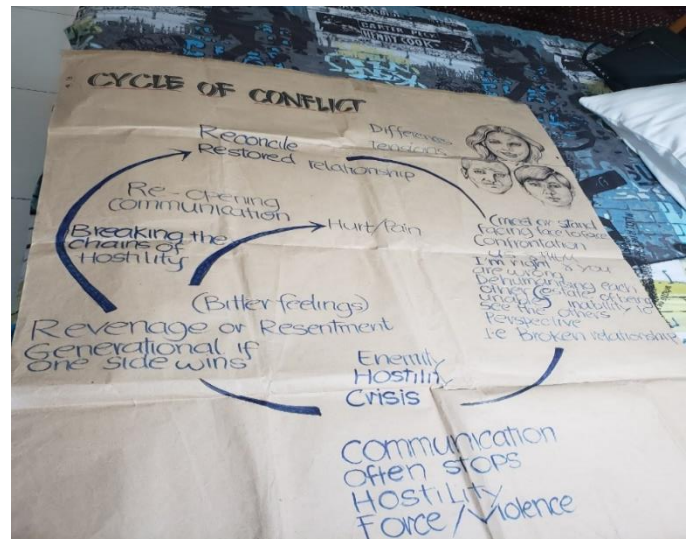 CARTER PECK
HENRY COOK
CYCLE OF CONFLICT
Difference
Tensions
Reconcile
Restored relationship
Re-opening
Communication
Breaking the
chains of
Hostility
Hurt/Pain
(meet or stand
facing face to face
Confrontation
us them
I'm right & you
are wrong
Dehumanising each
other (state of being
unable inability to
see the others
Perspective
i.e broken relationship
(Bitter feelings)
Revenage or Resentment
Generational if
one side wins
Enemity
Hostility
Crisis
Communication
Often stops
Hostility
Force / Violence